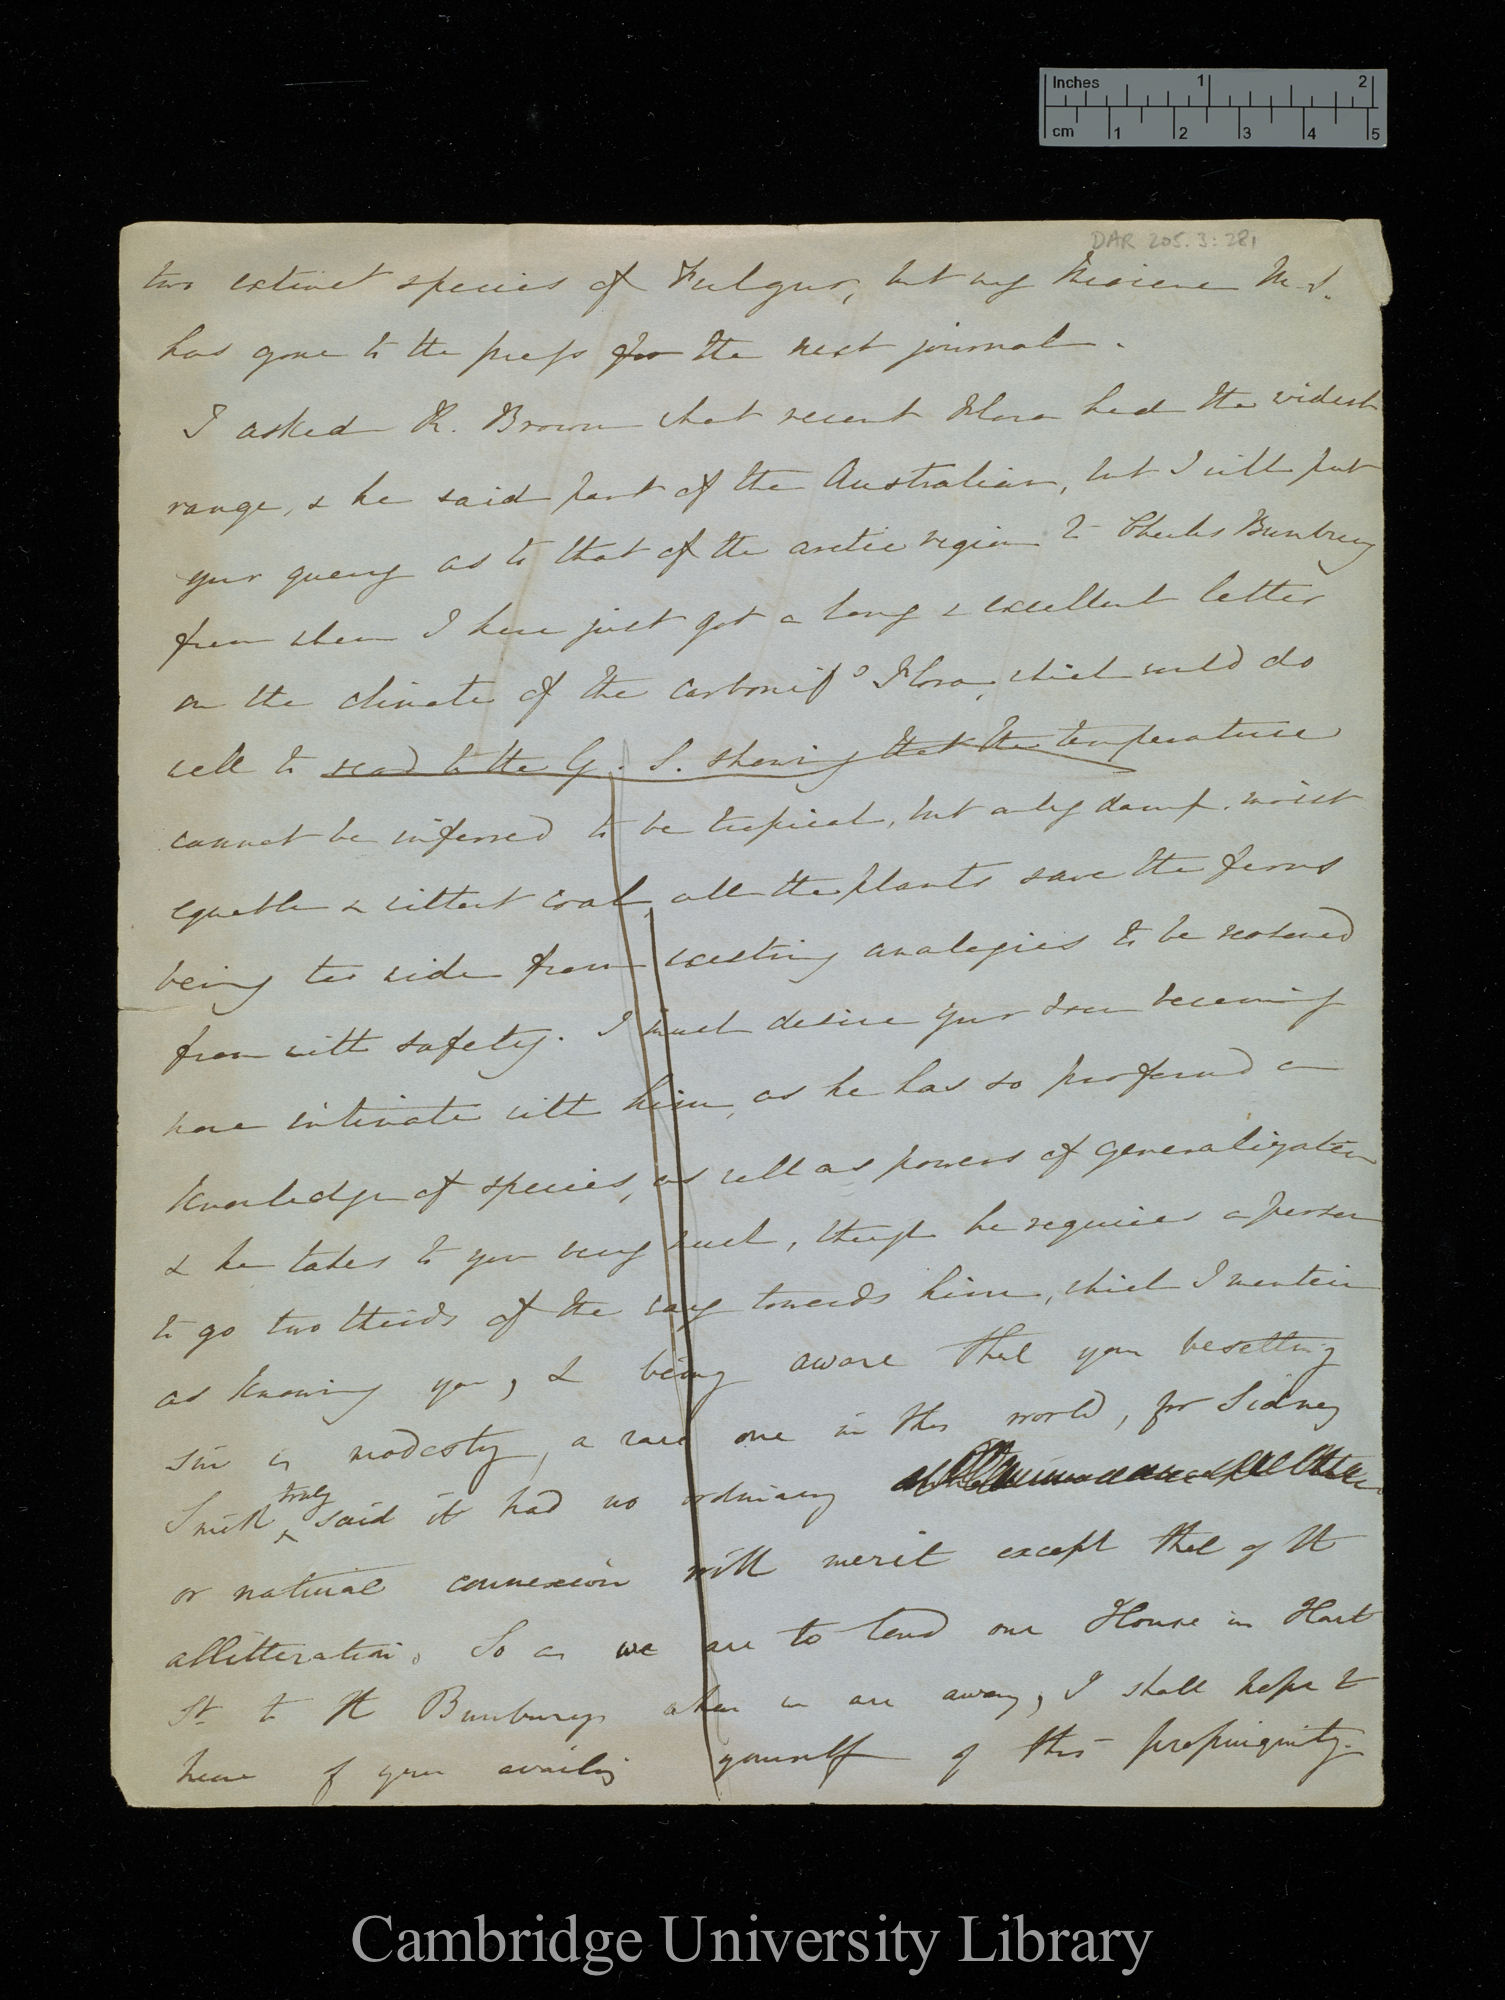 Inches 1 2
cm 1 2 3 4 5
DAR 205.3:281
two extinct species of Fulgur, but my Miocene M.S.
has gone to the press for the next journal.
I asked R. Brown what recent Flora had the widest
range, & he said part of the Australian, but I will put
your query as to that of the arctic region to Charles Bunbury
from whom I have just got a long & excellent letter
on the climate of the carbonifs Flora, which would do
well to read to the G. S. shewing that the temperature
cannot be inferred to be tropical, but only damp. moist
equable & without cold, all the plants save the ferns
being too wide from existing analogies to be reasoned
from with safety. I much desire your soon becoming
more intimate with him, as he has so profound a
knowledge of species, as well as powers of generalization
& he takes to you very much, though he requires a person
to go two thirds of the way towards him, which I mention
as knowing you, & being aware that your besetting
sin is modesty, a rare one in this world, for Sidney
Smith truly said it had no ordinary
or natural connexion with merit except that of the
allitteration. So as we are to lend our House in Hart
St. to the Bunburys when we are away, I shall hope to
hear of your availing yourself of this propinquity.
Cambridge University Library